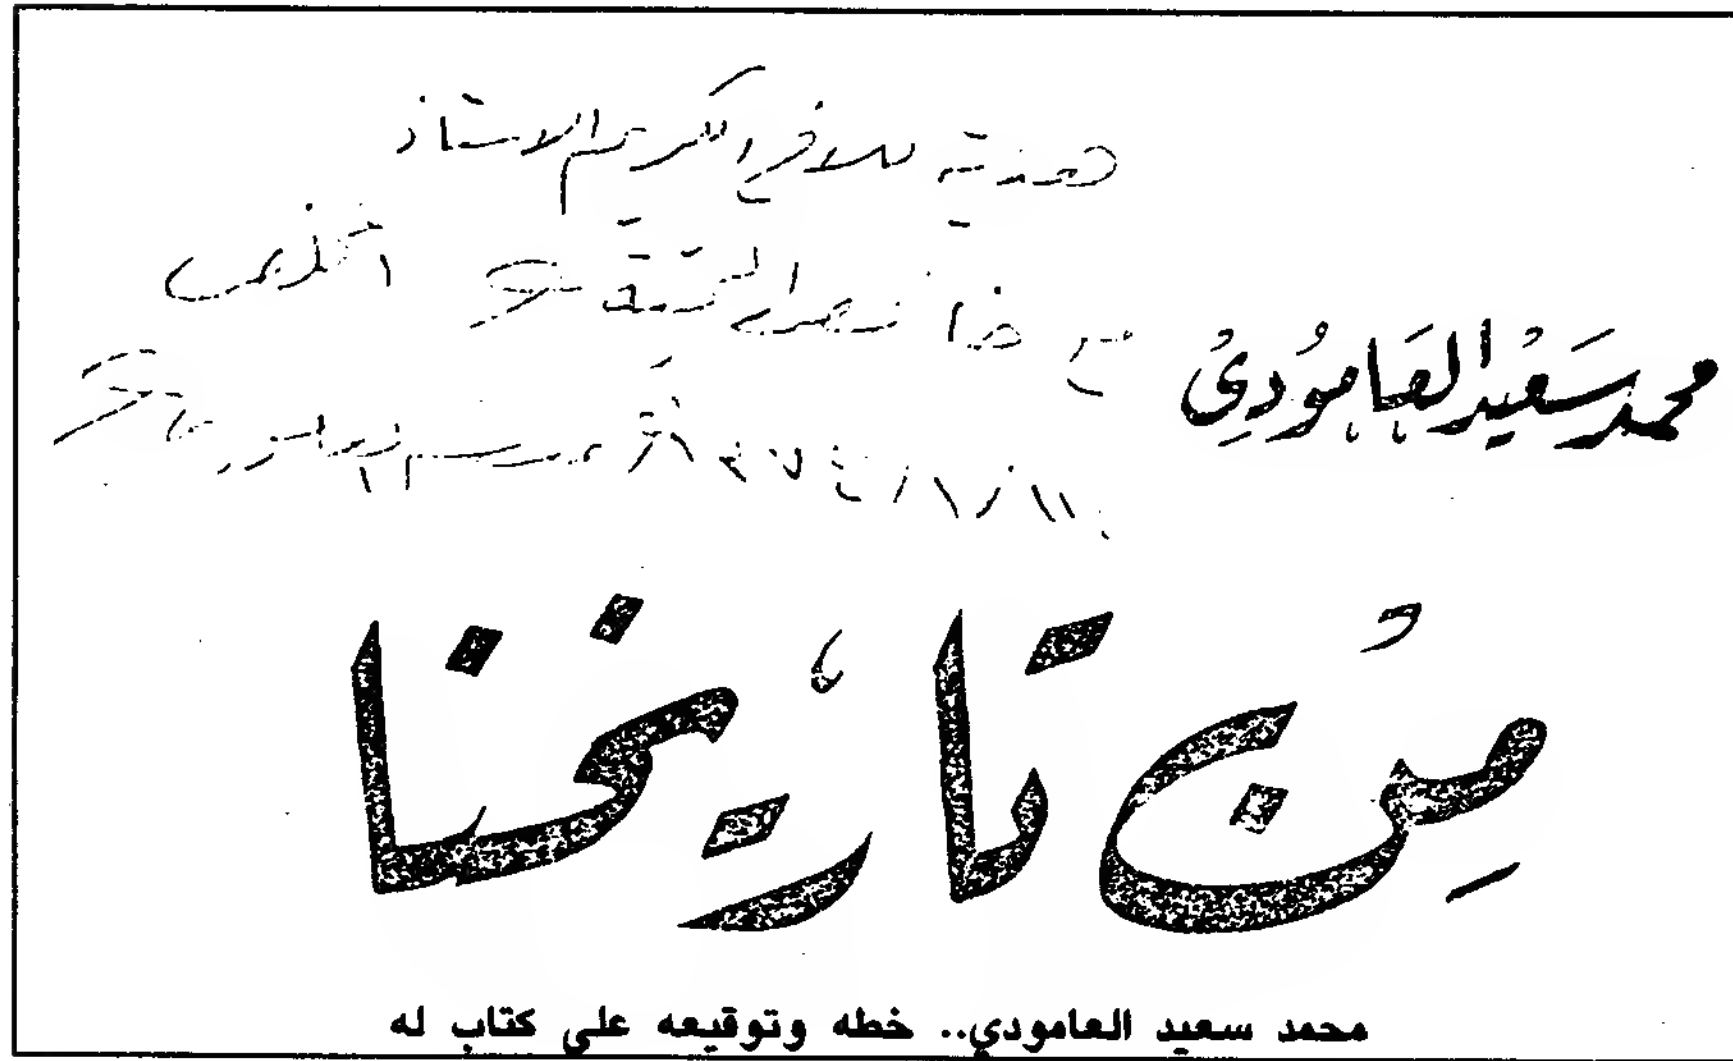 هدية للأخ الكريم الاستاذ
مع خالص التحية
محمد سعيد العامودي
١١ / ١ / ١٣٧٤
من تاريخنا
محمد سعيد العامودي.. خطه وتوقيعه على كتاب له